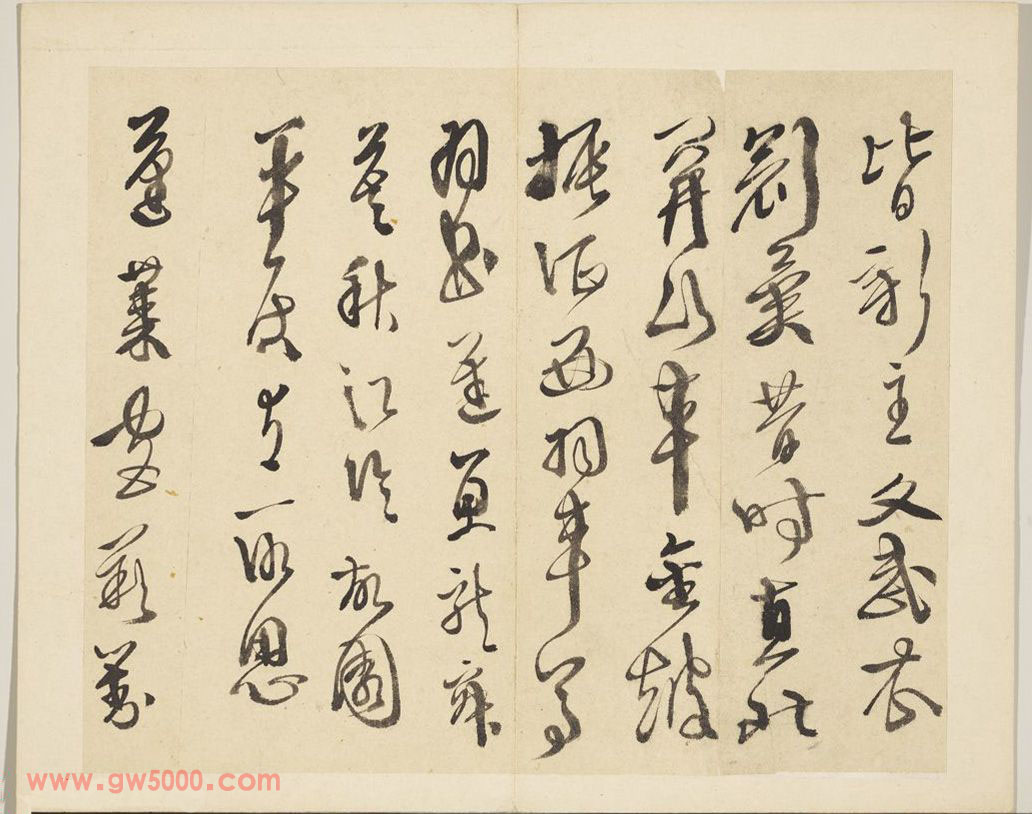 皆新主文武衣
冠異昔時直北
關山車金鼓
振征西車馬
羽書遲魚龍寂
寞秋江冷故國
平居有所思
蓬萊宮闕對
www.gw5000.com